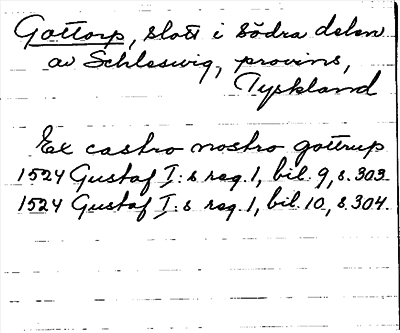 Gottorp, slott i södra delen
av Schleswig, provins,
Tyskland
Ex castro nostro gottrup
1524 Gustaf I:s reg. 1, bil. 9, s. 303.
1524 Gustaf I:s reg. 1, bil. 10, s. 304.